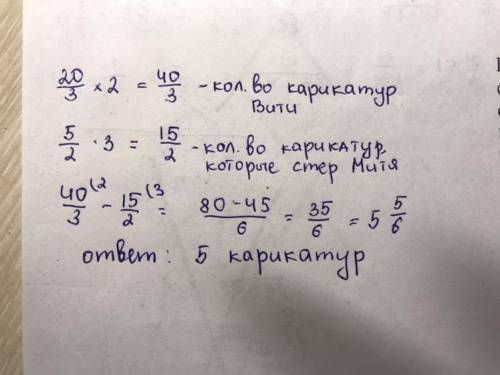 20/3 × 2 = 40/3 - кол.во карикатур
Вити
5/2 · 3 = 15/2 - кол.во карикатур
которые стер Митя
40/3 (2 - 15/2 (3 = 80-45/6 = 35/6 = 5 5/6
ответ: 5 карикатур